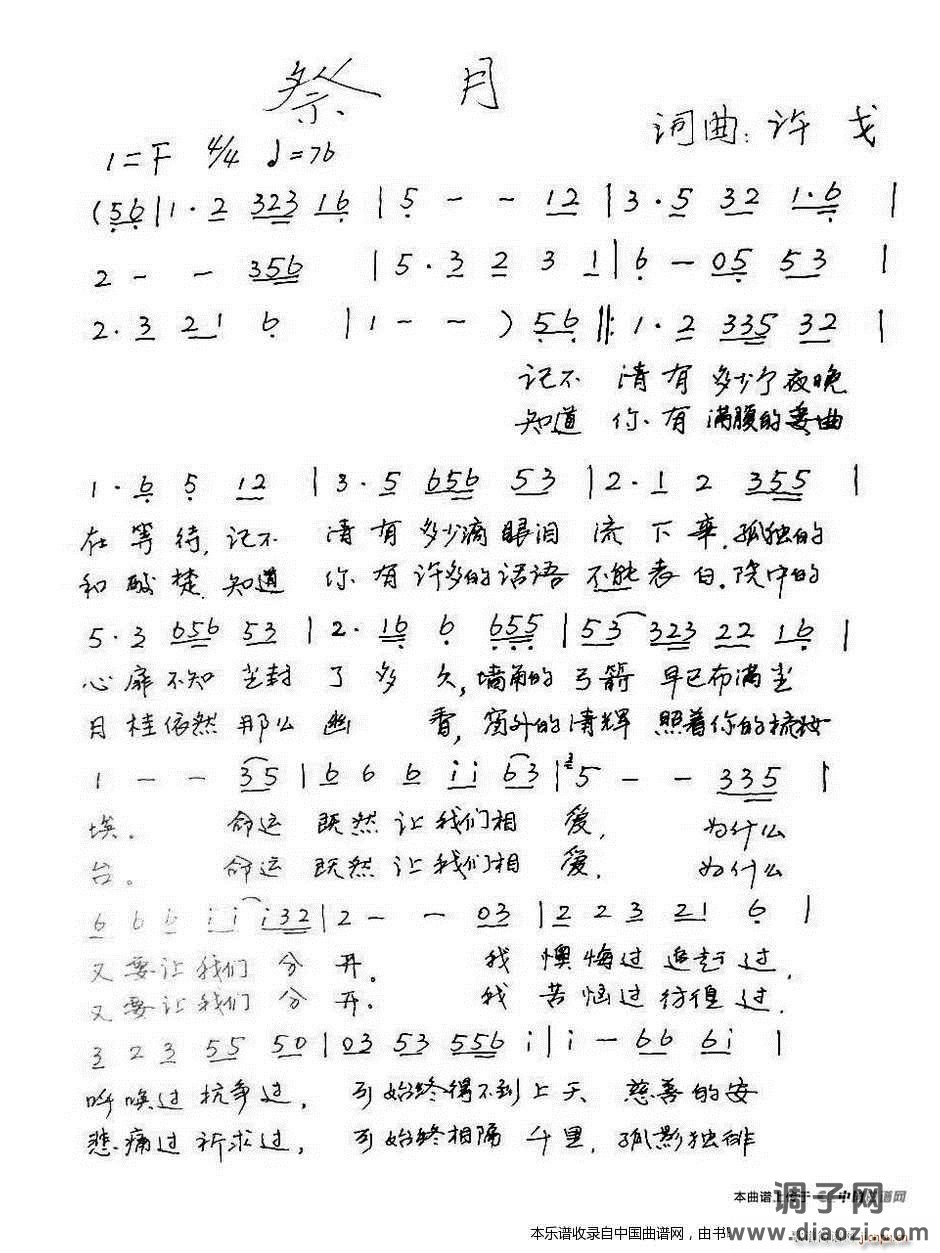 祭 月
词曲: 许 戈
1=F 4/4 ♩=76
(56|1·2 323 16|5 - - 12|3·5 32 1·6|
2 - - 356 |5·3 2 3 1|6 - 05 53|
2·3 21 6 |1 - - )56‖:1·2 335 32|
记不 清有 多少个夜晚
知道 你有 满腹的委曲
1·6 5 12 |3·5 656 53|2·1 2 355|
在等待,记不 清有多少滴眼泪 流下来,孤独的
和酸楚.知道 你有许多的话语 不能表白.院中的
5·3 656 53|2·16 6 666|53 323 22 16|
心扉不知尘封 了多久,墙角的弓箭 早已布满尘
月桂依然那么幽 香,窗外的清辉 照着你的梳妆
1 - - 35|6 6 6 ii 63|5 - - 335|
埃。 命运 既然让我们相 爱, 为什么
台。 命运 既然让我们相 爱, 为什么
6 6 6 ii i32|2 - - 03|2 2 3 21 6|
又要让我们 分 开。 我 懊悔过 追赶过,
又要让我们 分 开. 我 苦恼过彷徨过,
3 2 3 55 50|03 53 556 i|i - 66 6i|
呼唤过抗争过, 可始终得不到上天 慈善的安
悲痛过祈求过, 可始终相隔 千里,孤影独徘
本曲谱上传于 中国曲谱网
调子网
本乐谱收录自中国曲谱网,由书
www.diaozi.com